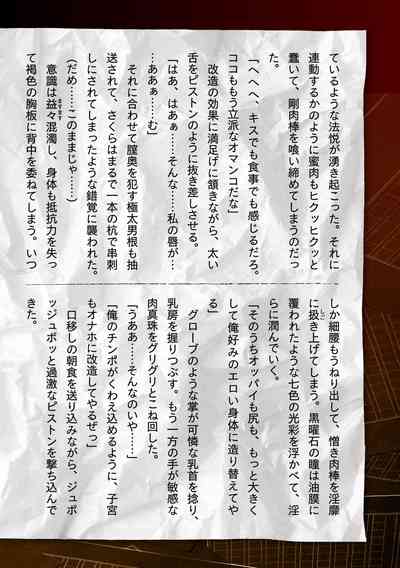 ているような法悦が湧き起こった。それに
連動するかのように蜜肉もヒクッヒクッと
蠢いて、剛肉棒を喰い締めてしまうのだっ
た。
「へへへ、キスでも食事でも感じるだろ。
ココももう立派なオマンコだな」
　改造の効果に満足げに頷きながら、太い
舌をピストンのように抜き差しさせる。
「はあ、はあぁ……そんな……私の唇が…
…ああぁ……む」
　それに合わせて膣奥を犯す極太男根も抽
送されて、さくらはまるで一本の杭で串刺
しにされてしまったような錯覚に襲われた。
（だめ……このままじゃ……）
　意識は益々混濁し、身体も抵抗力を失っ
て褐色の胸板に背中を委ねてしまう。いつ
しか細腰もうねり出して、憎き肉棒を淫靡
に扱き上げてしまう。黒曜石の瞳は油膜に
覆われたような七色の光彩を浮かべて、淫
らに潤んでいく。
「そのうちオッパイも尻も、もっと大きく
して俺好みのエロい身体に造り替えてや
る」
　グローブのような掌が可憐な乳首を捻り、
乳房を握りつぶす。もう一方の手が敏感な
肉真珠をグリグリとこね回した。
「うああ……そんなのいや……」
「俺のチンポがくわえ込めるように、子宮
もオナホに改造してやるぜっ」
　口移しの朝食を送り込みながら、ジュポ
ッジュポッと過激なピストンを撃ち込んで
きた。